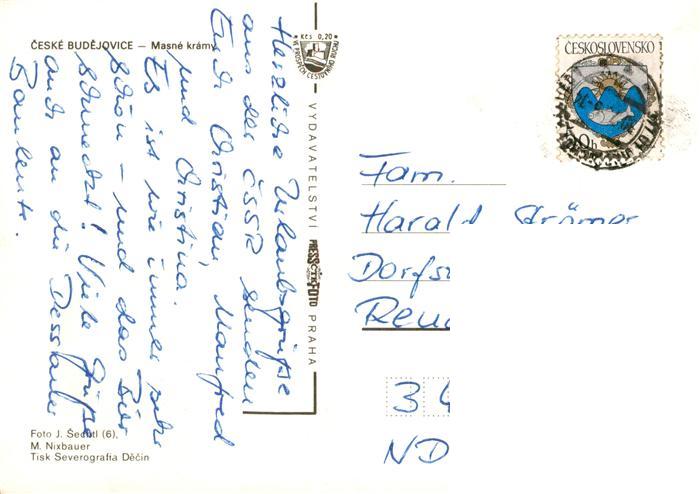 ČESKÉ BUDĚJOVICE — Masné krámy
Kčs 0,20
VE PROSPĚCH CESTOVNÍHO RUCHU
ČESKOSLOVENSKO
Herzliche Urlaubsgrüße
aus der ČSSR senden
Euch Christian, Manfred
und Christina.
Es ist wie immer sehr
schön – und das Bier
schmeckt! Viele Grüße
auch an die Dessauer
VYDAVATELSTVÍ PRESSFOTO PRAHA
Fam.
Harald
Dorfs
3 4
ND
Foto J. Šechtl (6),
M. Nixbauer
Tisk Severografia Děčín